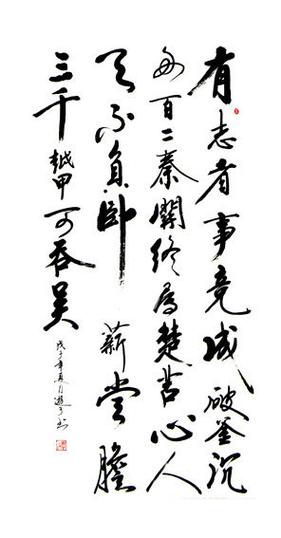 有志者事竟成破釜沉
舟百二秦關終屬楚苦心人
天不負卧薪嘗膽
三千越甲可吞吳
戊子年夏月